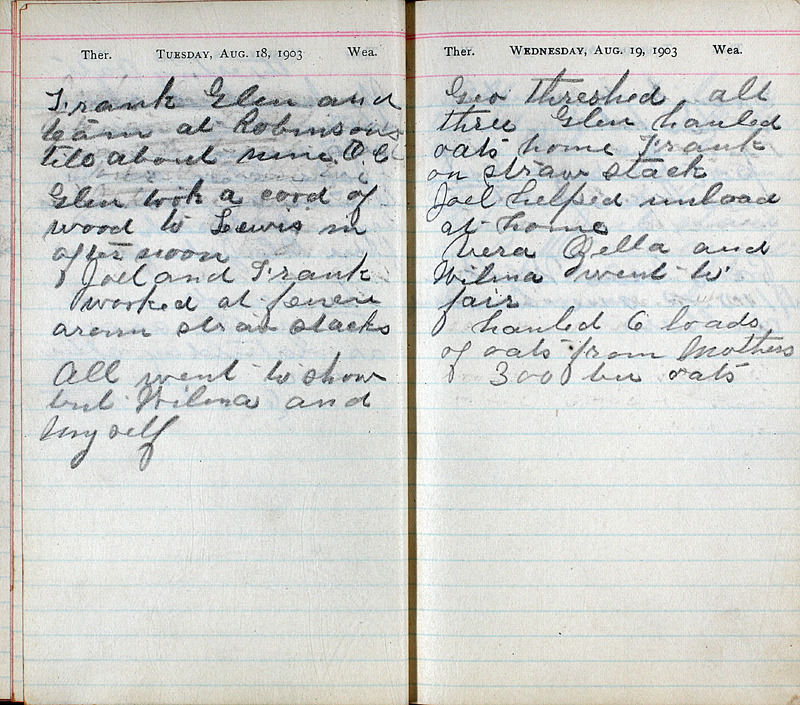 Ther. Tuesday, Aug. 18, 1903 Wea.
Frank Glen and
team at Robinsons
till about nine O C
Glen took a cord of
wood to Lewis in
after noon
Joel and Frank
worked at fencin
aroun straw stacks
All went to show
but Wilma and
Myself
Ther. Wednesday, Aug. 19, 1903 Wea.
Geo threshed all
three Glen hauled
oats home Frank
on straw stack
Joel helped unload
at home
Vera Zella and
Wilma went to
fair
hauled 6 loads
of oats from Mothers
300 bu oats